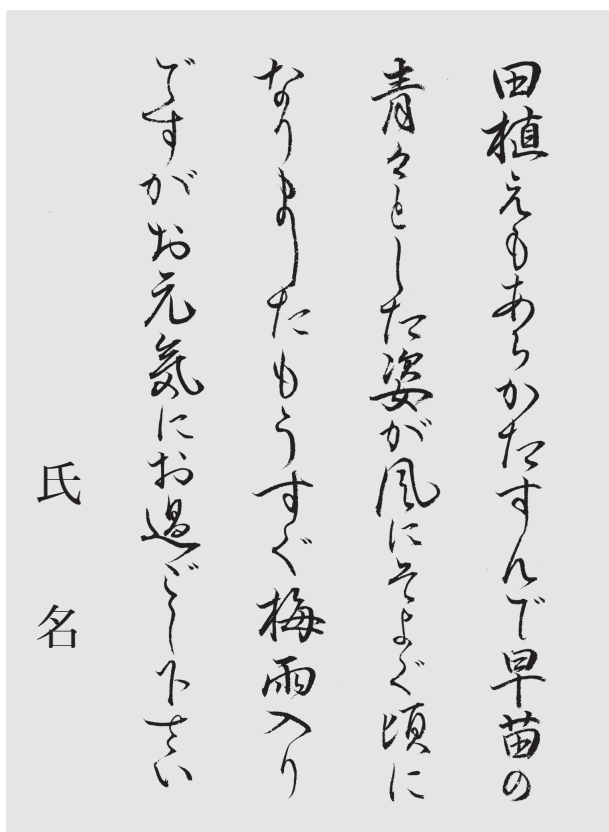 田植えもあらかたすんで早苗の
青々とした姿が風にそよぐ頃に
なりましたもうすぐ梅雨入り
ですがお元気にお過ごし下さい
氏名